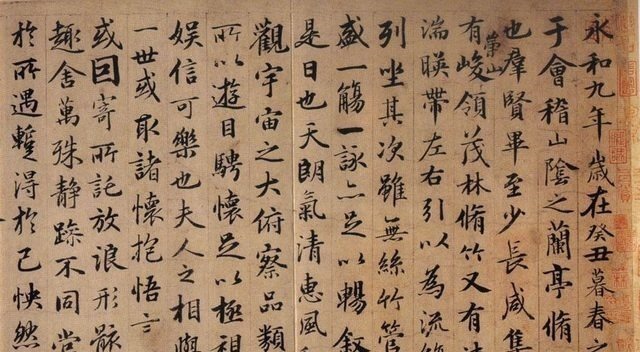 永和九年歲在癸丑暮春之
于會稽山陰之蘭亭脩
也羣賢畢至少長咸集
有崇山峻領茂林脩竹又有清
湍暎帶左右引以為流觴
列坐其次雖無絲竹管
盛一觴一詠亦足以暢叙
是日也天朗氣清惠風
觀宇宙之大俯察品類
所以遊目騁懷足以極視
娛信可樂也夫人之相與
一世或取諸懷抱悟言
或因寄所託放浪形骸
趣舍萬殊静躁不同當
於所遇蹔得於己怏然